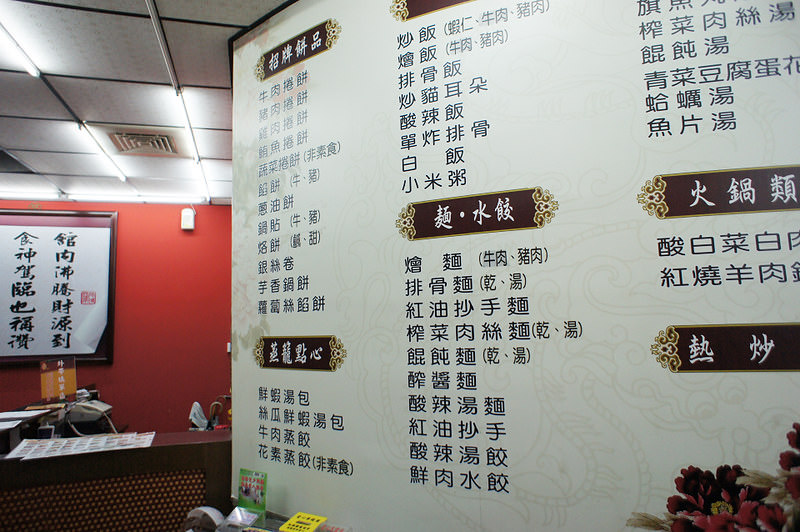 招牌餅品
牛肉捲餅
豬肉捲餅
雞肉捲餅
鮪魚捲餅
蔬菜捲餅(非素食)
餡餅(牛、豬)
蔥油餅
鍋貼(牛、豬)
烙餅(鹹、甜)
銀絲卷
芋香鍋餅
蘿蔔絲餡餅
蒸籠點心
鮮蝦湯包
絲瓜鮮蝦湯包
牛肉蒸餃
花素蒸餃(非素食)
炒飯(蝦仁、牛肉、豬肉)
燴飯(牛肉、豬肉)
排骨飯
炒貓耳朵
酸辣飯
單炸排骨
白飯
小米粥
麵·水餃
燴麵(牛肉、豬肉)
排骨麵(乾、湯)
紅油抄手麵
榨菜肉絲麵(乾、湯)
餛飩麵(乾、湯)
醡醬麵
酸辣湯麵
紅油抄手
酸辣湯餃
鮮肉水餃
榨菜肉絲湯
餛飩湯
青菜豆腐蛋花
蛤蠣湯
魚片湯
火鍋類
酸白菜白肉
紅燒羊肉鍋
熱炒
館內沸騰財源到
食神駕臨也稱讚